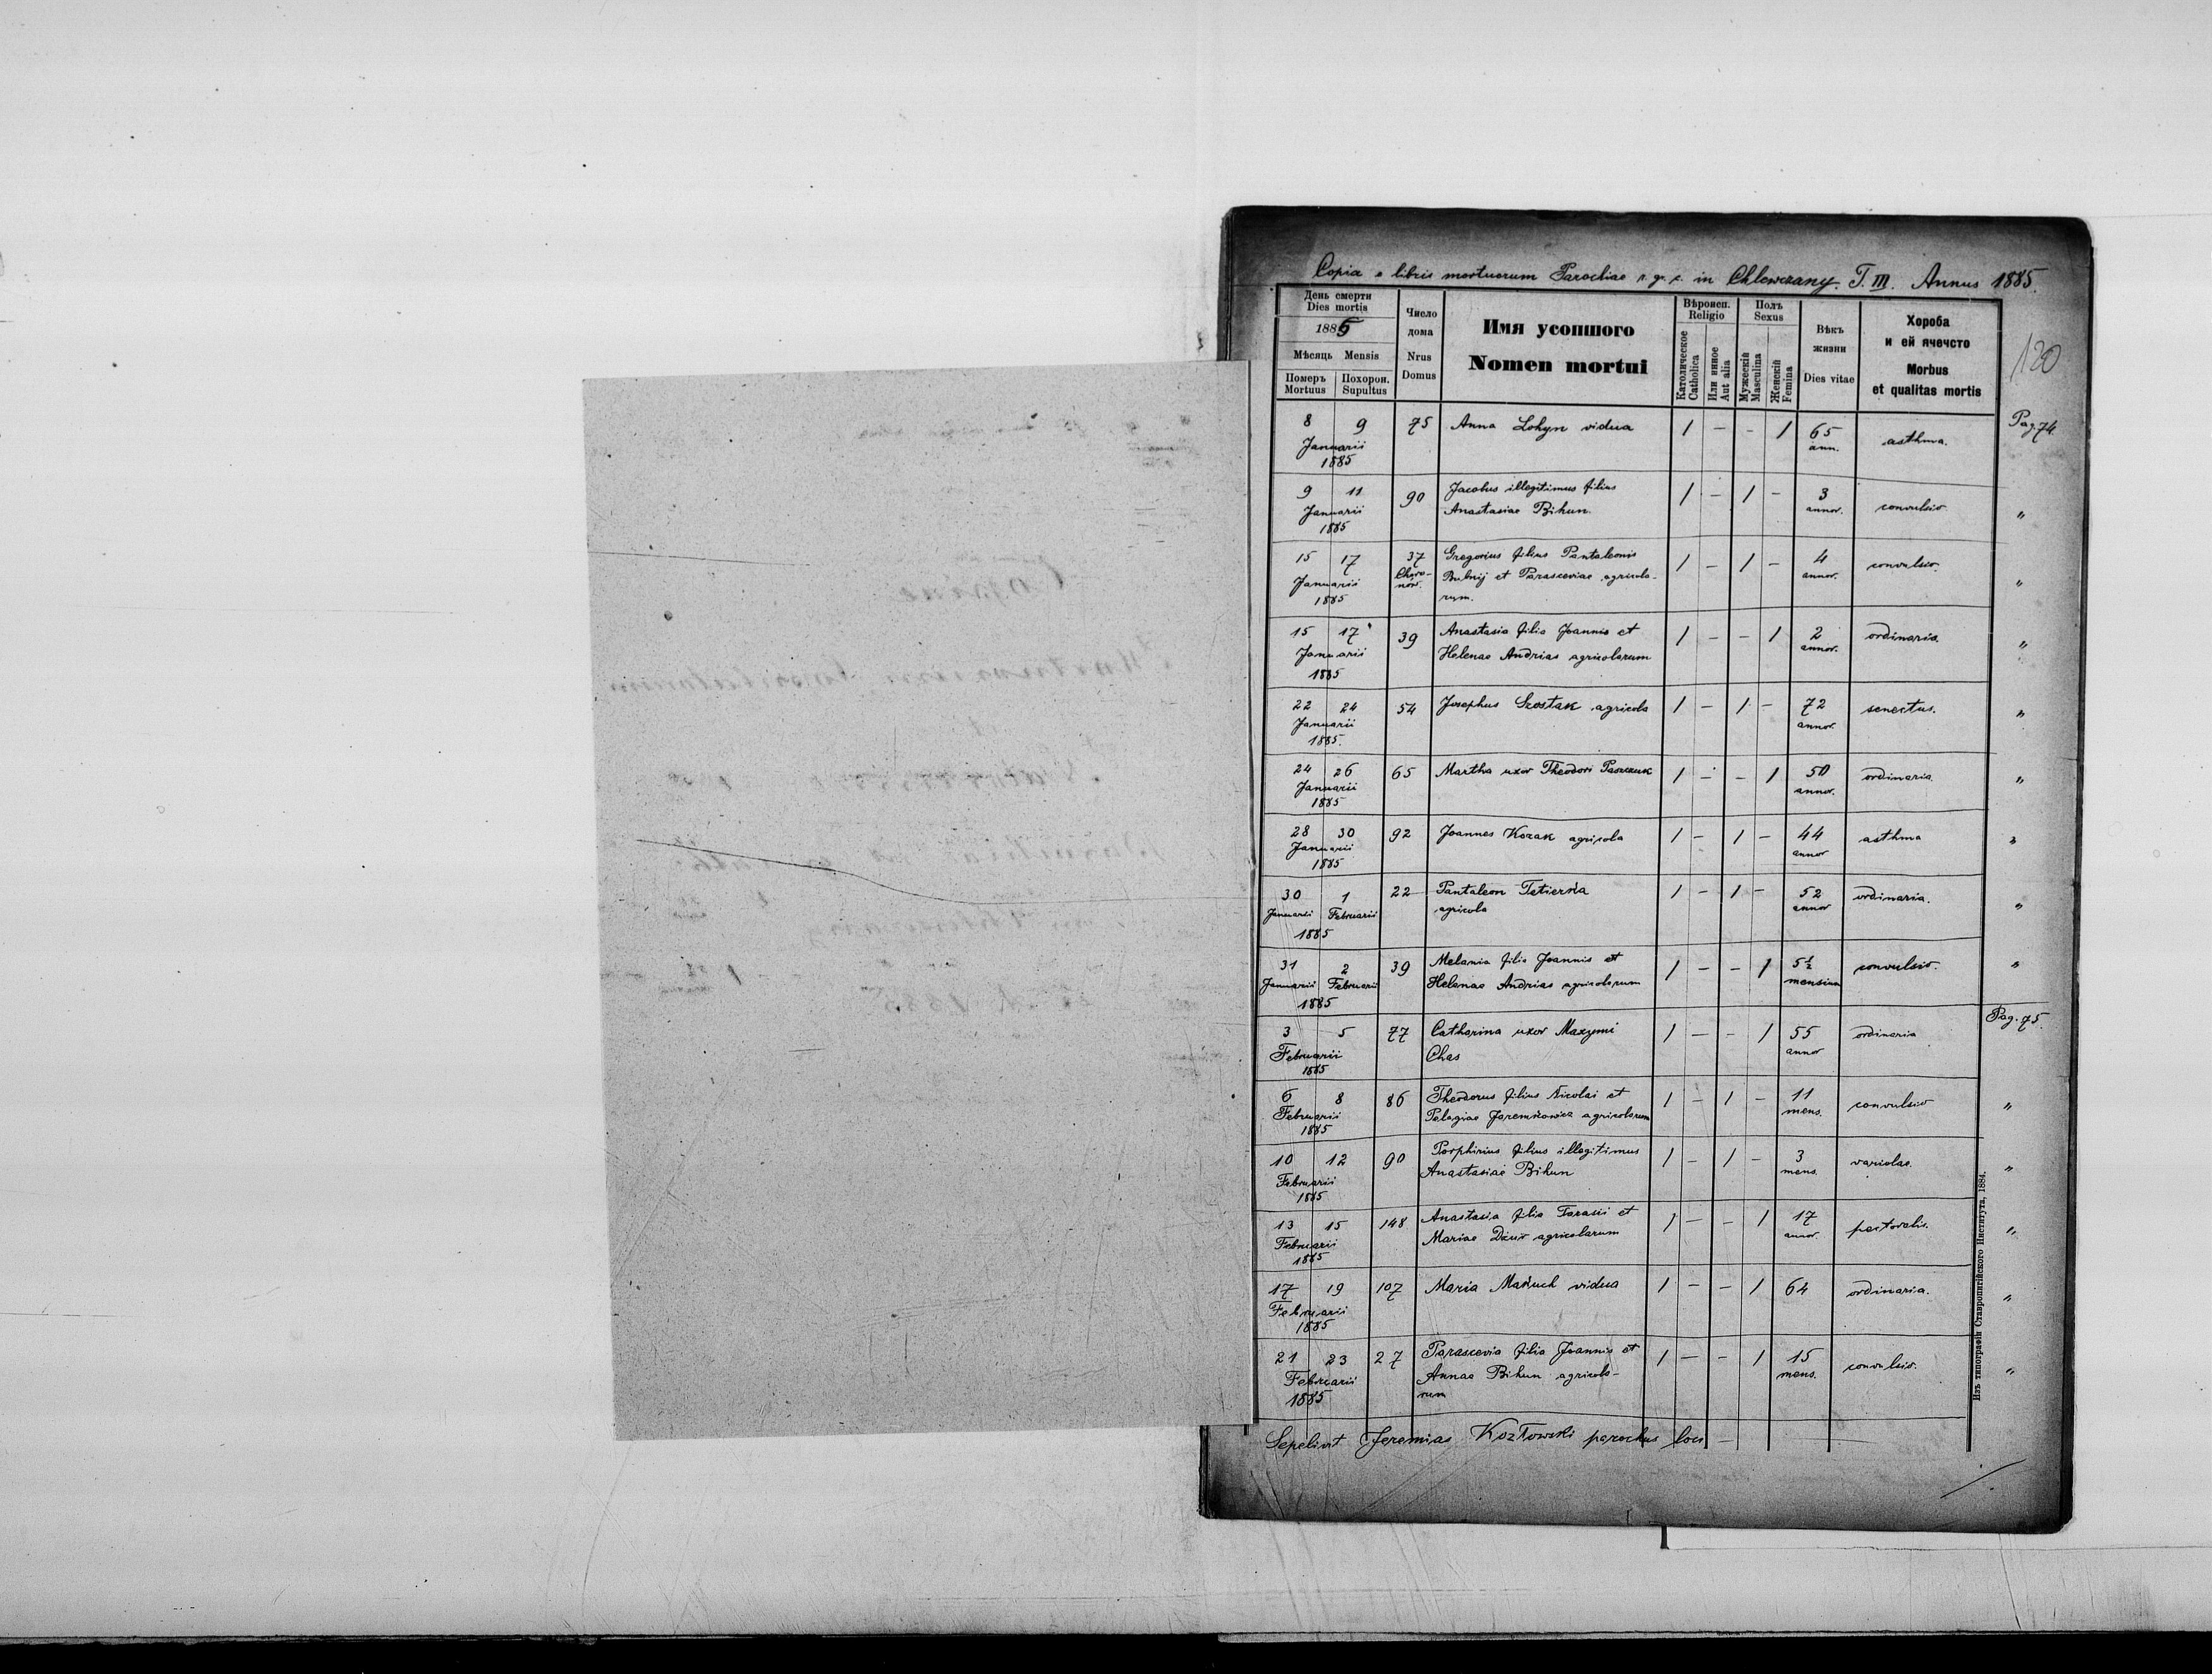 Copia e libris mortuorum Parochiae r. gr. c. in Chlewczany. T. III. Annus 1885.
120
День смерти
Dies mortis
1885
Мѣсяць Mensis
Померъ Mortuus
Похорон. Supultus
Число дома
Nrus Domus
Имя усопшого
Nomen mortui
Вѣроисп.
Religio
Католическое Catholica
Или инное Aut alia
Полъ
Sexus
Мужескій Masculina
Женскій Femina
Вѣкъ жизни
Dies vitae
Хороба
и ей ячечсто
Morbus
et qualitas mortis
8 9 75 Anna Lohyn vidua 1 - - 1 65 asthma. Pag. 74.
Januarii ann.
1885
9 11 90 Jacobus illegitimus filius 1 - 1 - 3 convulsio. "
Januarii Anastasiae Bihun. annor.
1885
15 17 37 Gregorius filius Pantaleonis 1 - 1 - 4 convulsio. "
Januarii et Parasceviae agricola- annor.
1885 rum.
15 17 39 Anastasia filia Joannis et 1 - - 1 2 ordinaria. "
Januarii Helenae Andrias agricolarum annor.
1885
22 24 54 Josephus Szostak agricola 1 - 1 - 72 senectus. "
Januarii annor.
1885.
24 26 65 Martha uxor Theodori Paszczuk 1 - - 1 50 ordinaria. "
Januarii annor.
1885
28 30 92 Joannes Kozak agricola 1 - 1 - 44 asthma "
Januarii annor
1885
30 1 22 Pantaleon 1 - 1 - 52 ordinaria. "
Januarii Februarii agricola annor
1885
31 2 39 Melania filia Joannis et 1 - - 1 5½ convulsio. "
Januarii Februarii Helenae Andrias agricolarum mensium
1885
3 5 77 Catharina uxor Maxymi 1 - - 1 55 ordinaria Pag. 75.
Februarii Chas annor
1885
6 8 86 Theodorus filius Nicolai et 1 - 1 - 11 convulsio "
Februarii Pelagiae Jaremkowicz agricolarum mens.
1885
10 12 90 Porphirius filius illegitimus 1 - 1 - 3 variolae. "
Februarii Anastasiae Bihun mens.
1885
13 15 148 Anastasia filia Tarasii et 1 - - 1 17 pectoralis. "
Februarii Mariae agricolarum annor.
1885
17 19 107 Maria Mańuch vidua 1 - - 1 64 ordinaria. "
Februarii
1885
21 23 27 Parascevia filia Joannis et 1 - - 1 15 convulsio. "
Februarii Annae Bihun agricola- mens.
1885 rum
Sepelivit Jeremias Kozłowski parochus loci
Изъ типографіи Ставропигійского Института, 1884.